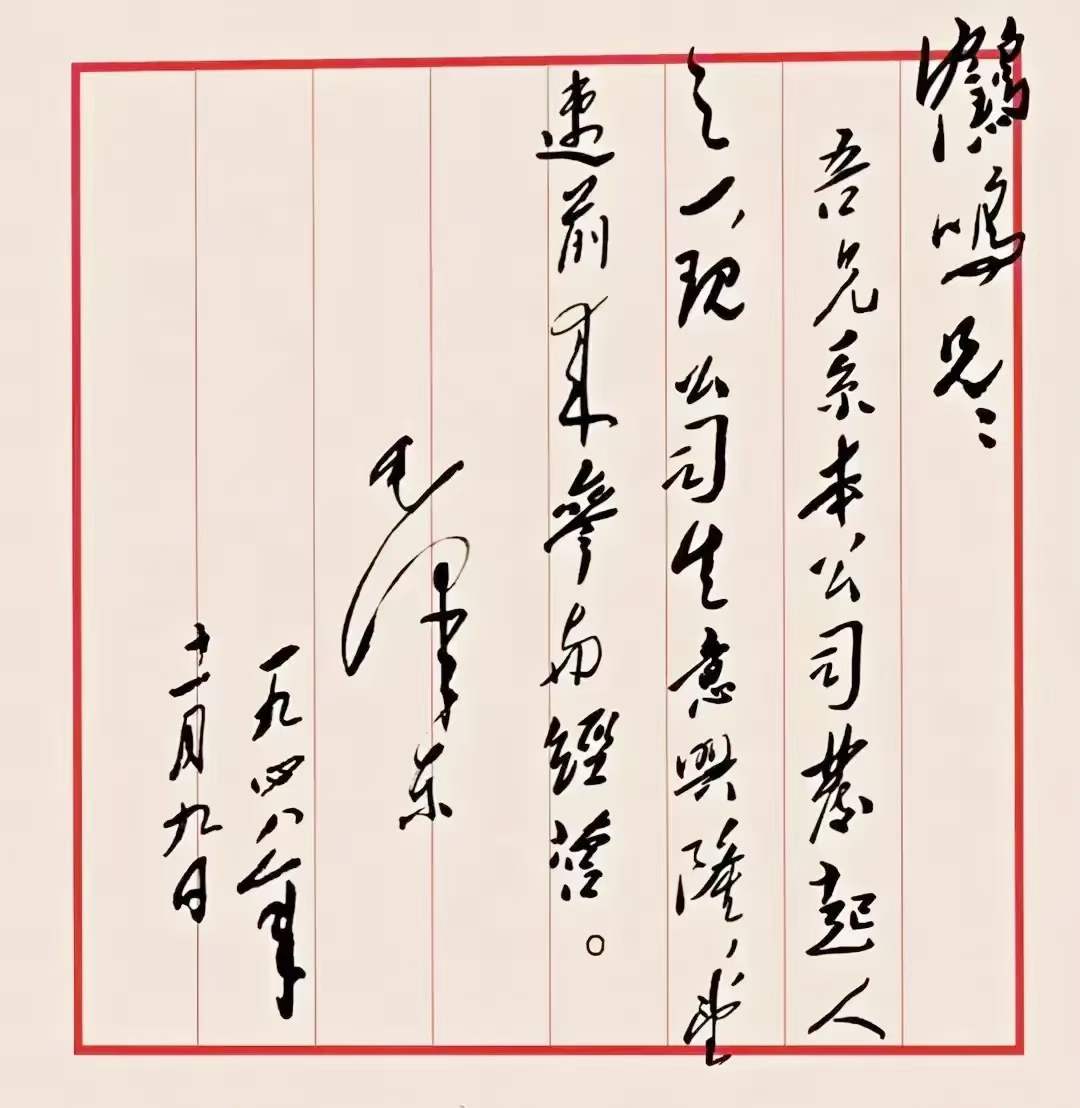 鹤鸣兄：
吾兄系本公司發起人
之一，现公司生意興隆，望
速前来參与經营。
毛澤东
一九四八年
十一月九日